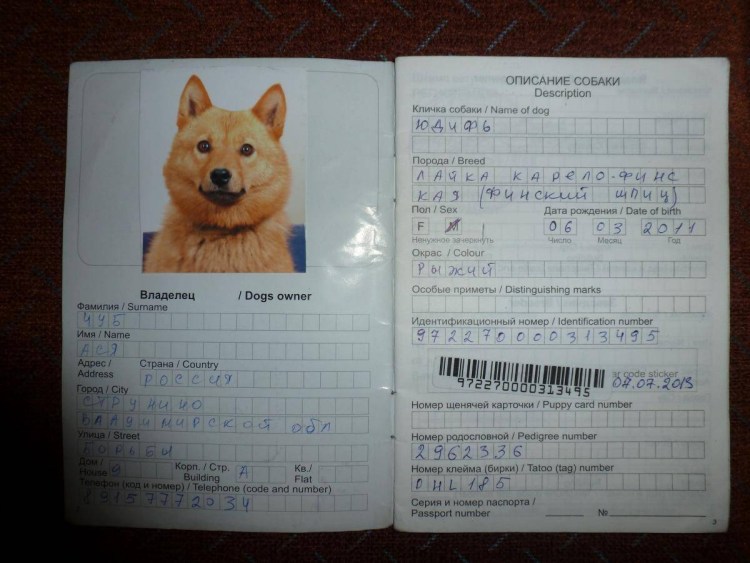 Владелец / Dogs owner
Фамилия / Surname
ЧУБ
Имя / Name
АСЯ
Адрес / Address
Страна / Country
РОССИЯ
Город / City
СТРУНИНО
ВЛАДИМИРСКОЙ ОБЛ
Улица / Street
БОРЬБЫ
Дом / House 9 Корп. / Стр. Building А Кв./ Flat
Телефон (код и номер) / Telephone (code and number)
89157772034
ОПИСАНИЕ СОБАКИ
Description
Кличка собаки / Name of dog
ЮДИФЬ
Порода / Breed
ЛАЙКА КАРЕЛО-ФИНС
КАЯ (ФИНСКИЙ ШПИЦ)
Пол / Sex Дата рождения / Date of birth
F M 06 03 2011
Ненужное зачеркнуть Число Месяц Год
Окрас / Colour
РЫЖИЙ
Особые приметы / Distinguishing marks
Идентификационный номер / Identification number
972270000313495
972270000313495
ar code sticker
04.07.2013
Номер щенячей карточки / Puppy card number
Номер родословной / Pedigree number
2962336
Номер клейма (бирки) / Tatoo (tag) number
OHL185
Серия и номер паспорта /
Passport number №
3